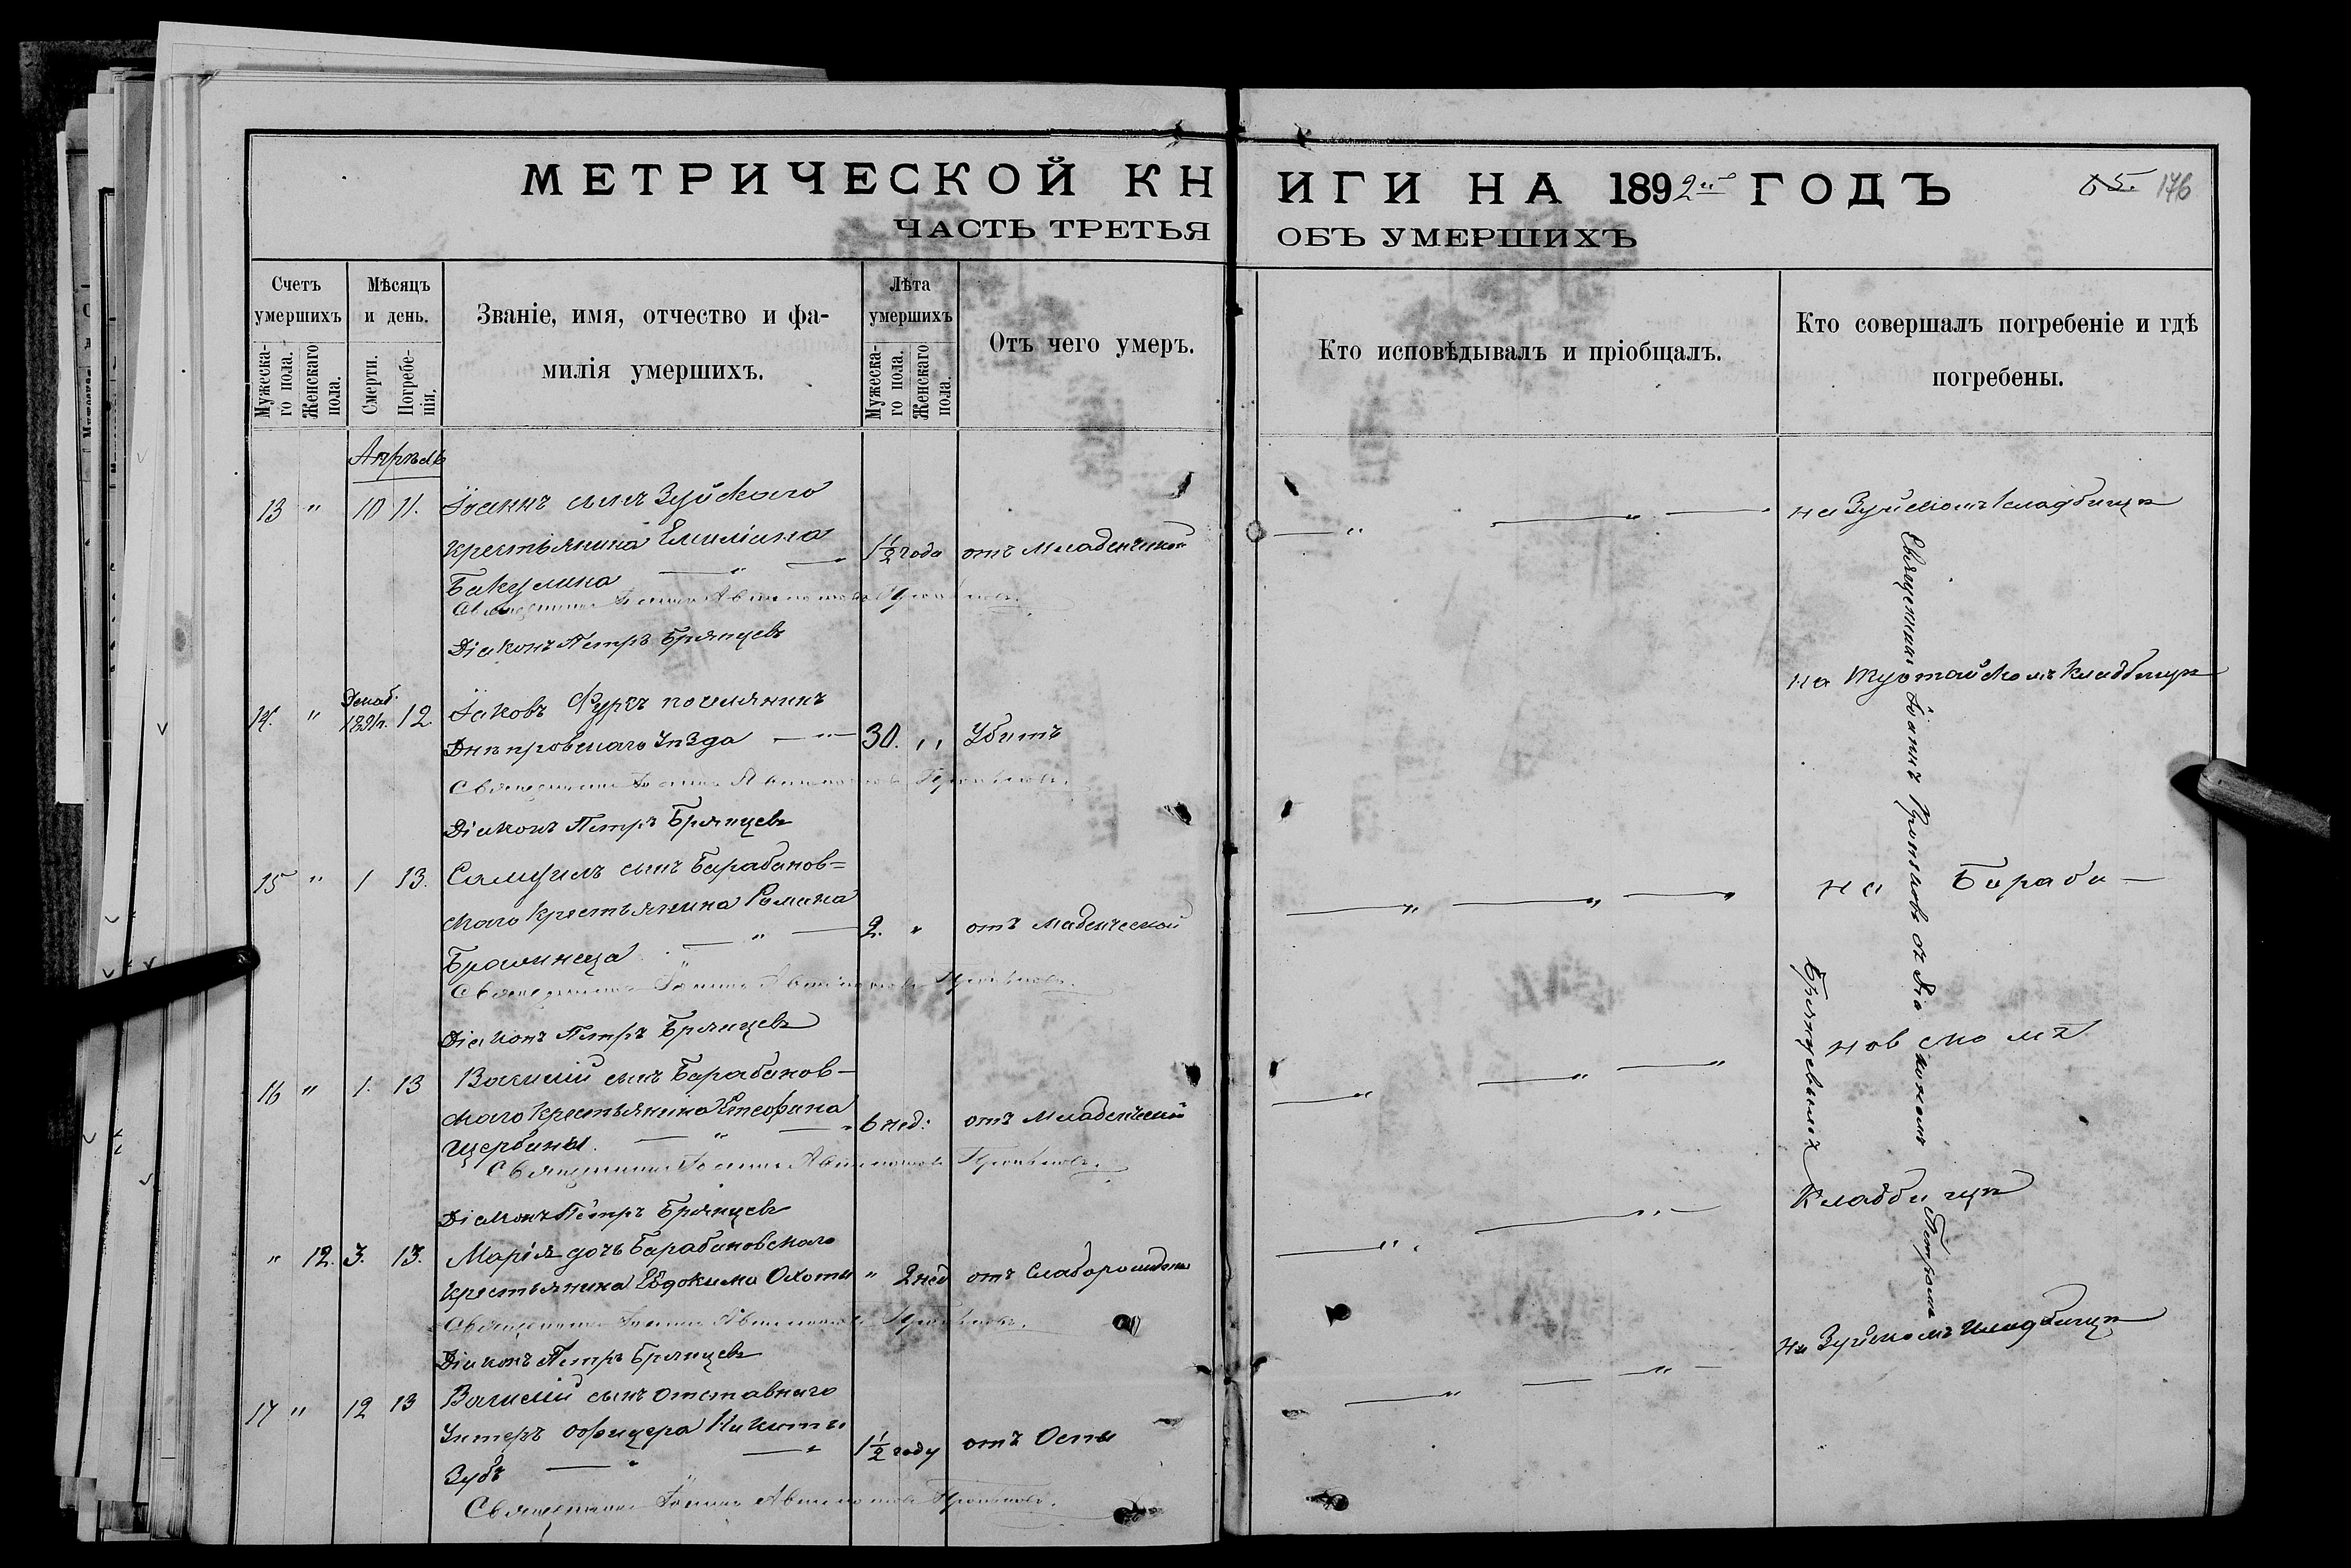 МЕТРИЧЕСКОЙ КНИГИ НА 1892й ГОДЪ
65. 176
ЧАСТЬ ТРЕТЬЯ ОБЪ УМЕРШИХЪ
Счетъ умершихъ
Мужескаго пола.
Женскаго пола.
Мѣсяцъ и день.
Смерти.
Погребенія.
Званіе, имя, отчество и фамилія умершихъ.
Лѣта умершихъ
Мужескаго пола.
Женскаго пола.
Отъ чего умеръ.
Кто исповѣдывалъ и пріобщалъ.
Кто совершалъ погребеніе и гдѣ погребены.
Апрѣль
13 " 10 11. Іоаннъ сынъ Зуйскаго
крестьянина Емиліана 1½ года отъ Младенческой
Бакулина
Діаконъ Петръ Брянцевъ
на Зуйскомъ кладбищѣ
14. " Декаб. 1891г. 12. Іаковъ поселянинъ
Днѣпровскаго Уѣзда 30. " Убитъ
Священникъ Іоаннъ
Діаконъ Петръ Брянцевъ
кладбищѣ
15 " 1 13. Самуилъ сынъ Барабанов=
скаго крестьянина Романа 2. " отъ младенческой
Священникъ Іоаннъ
Діаконъ Петръ Брянцевъ
на Бараба-
16 " 1. 13 Василій сынъ Барабанов-
скаго крестьянина 6 нед: отъ Младенческой
Щербины.
Священникъ Іоаннъ
Діаконъ Петръ Брянцевъ
новскомъ
Кладбищѣ
" 12. 3. 13. Марія дочь Барабановскаго
крестьянина Евдокима Охоты " 2 нед отъ
Священникъ Іоаннъ
Діаконъ Петръ Брянцевъ
17 " 12 13 Василій сынъ отставнаго
Унтеръ офицера Никиты 1½ году отъ Оспы
Зубъ
Священникъ Іоаннъ
на Зуйскомъ кладбищѣ
Священникъ Іоаннъ съ Діакономъ Петромъ
Брянцевымъ